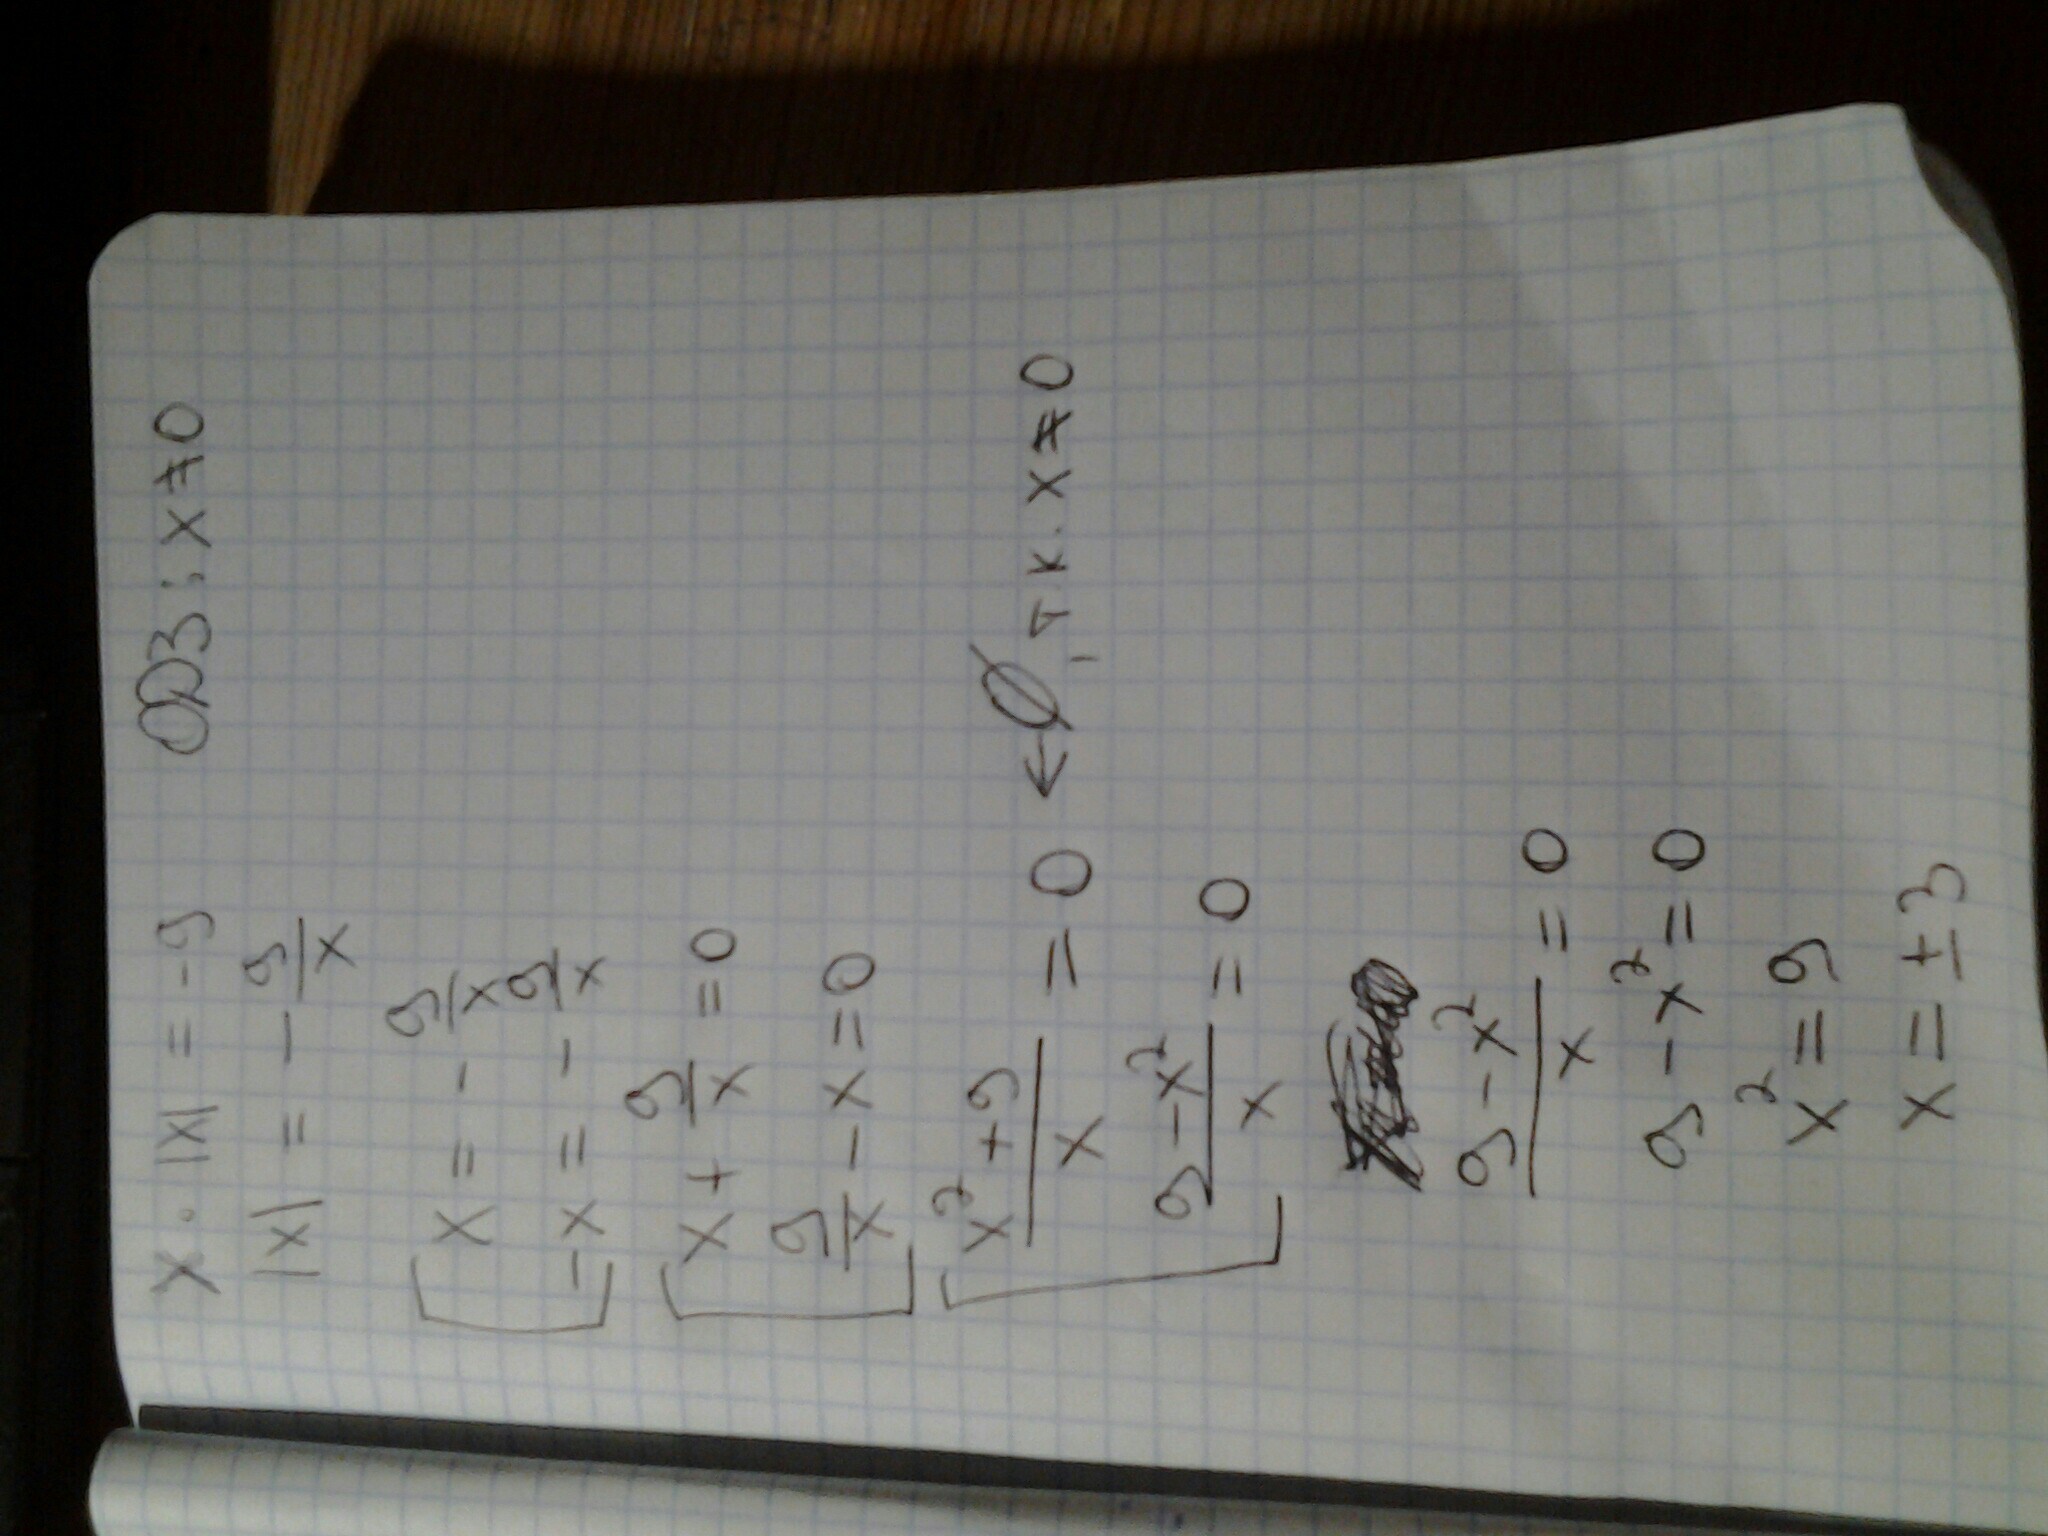 x · |x| = -9 ОДЗ: x ≠ 0
|x| = - 9/x
[ x = - 9/x
-x = - 9/x
[ x + 9/x = 0
9/x - x = 0
[ (x² + 9)/x = 0 ← ∅, т.к. x ≠ 0
(9 - x²)/x = 0
(9 - x²)/x = 0
9 - x² = 0
x² = 9
x = ± 3